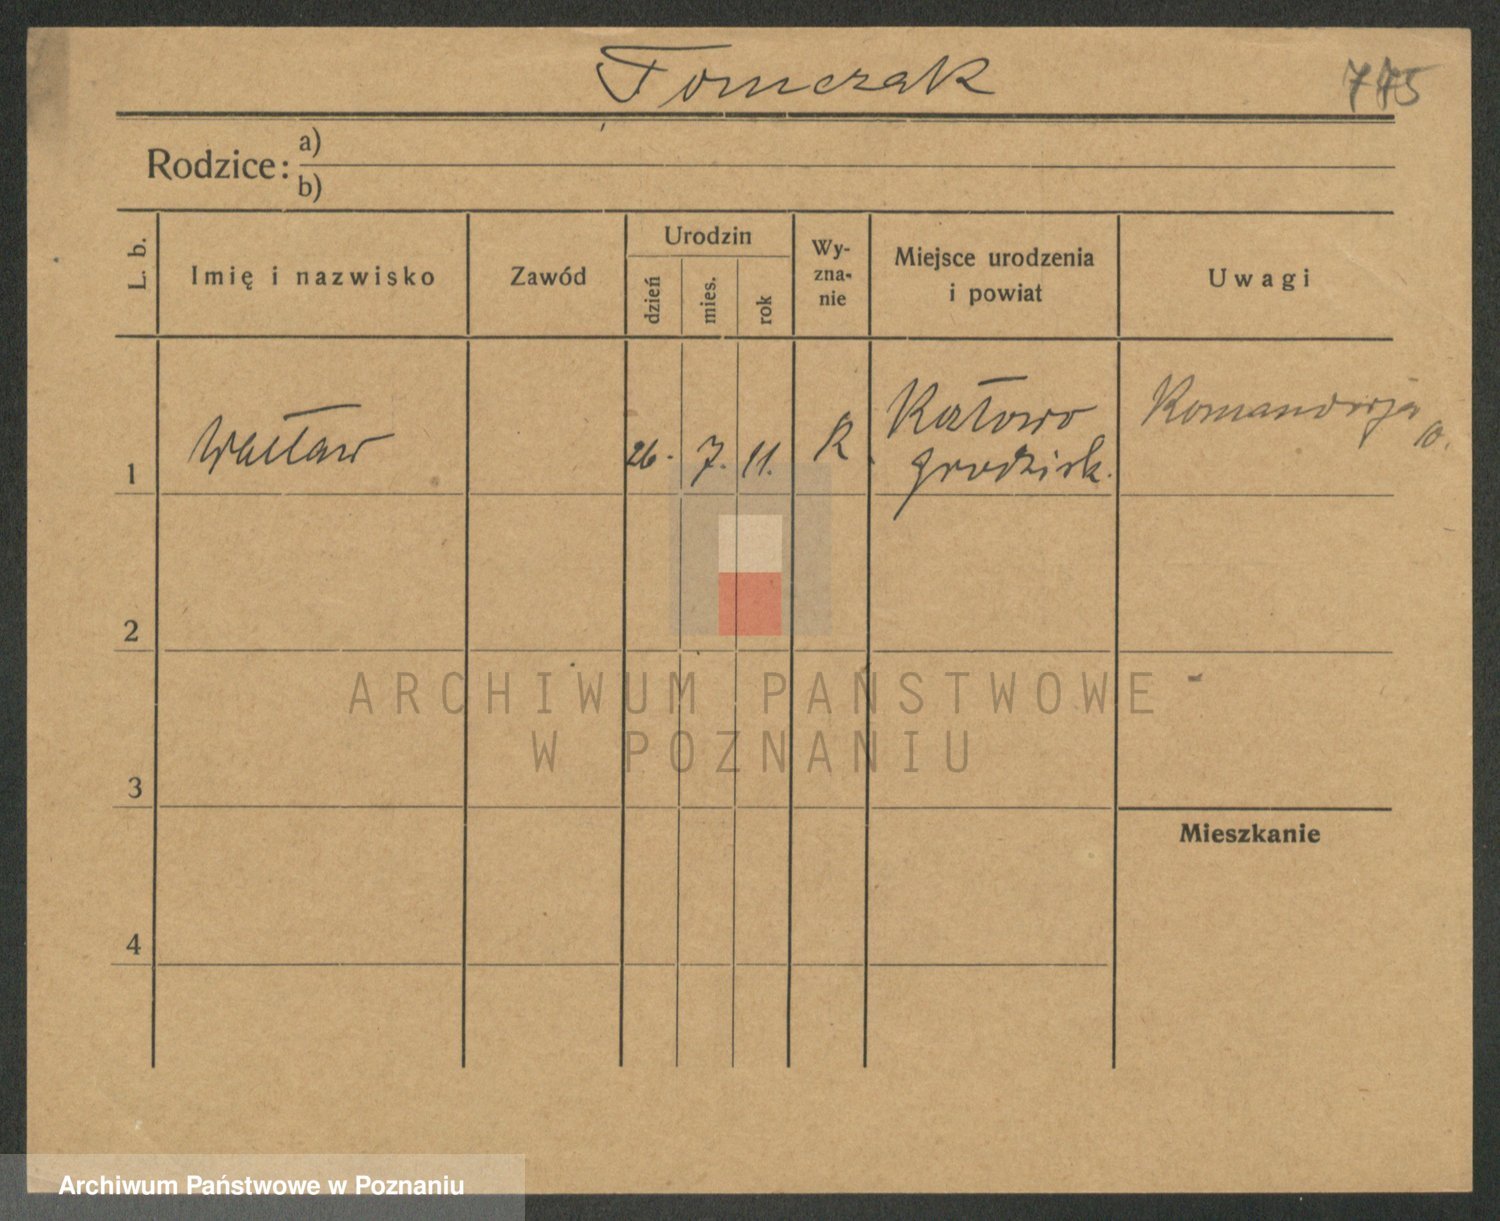 Tomczak 775
Rodzice: a)
b)
L. b. Imię i nazwisko Zawód Urodzin Wy- Miejsce urodzenia Uwagi
dzień mies. rok zna- i powiat
nie
1 Wacław 26. 7. 11. R. Kotowo Komandorja
grodzisk. 10.
2
ARCHIWUM PAŃSTWOWE
W POZNANIU
3
Mieszkanie
4
Archiwum Państwowe w Poznaniu